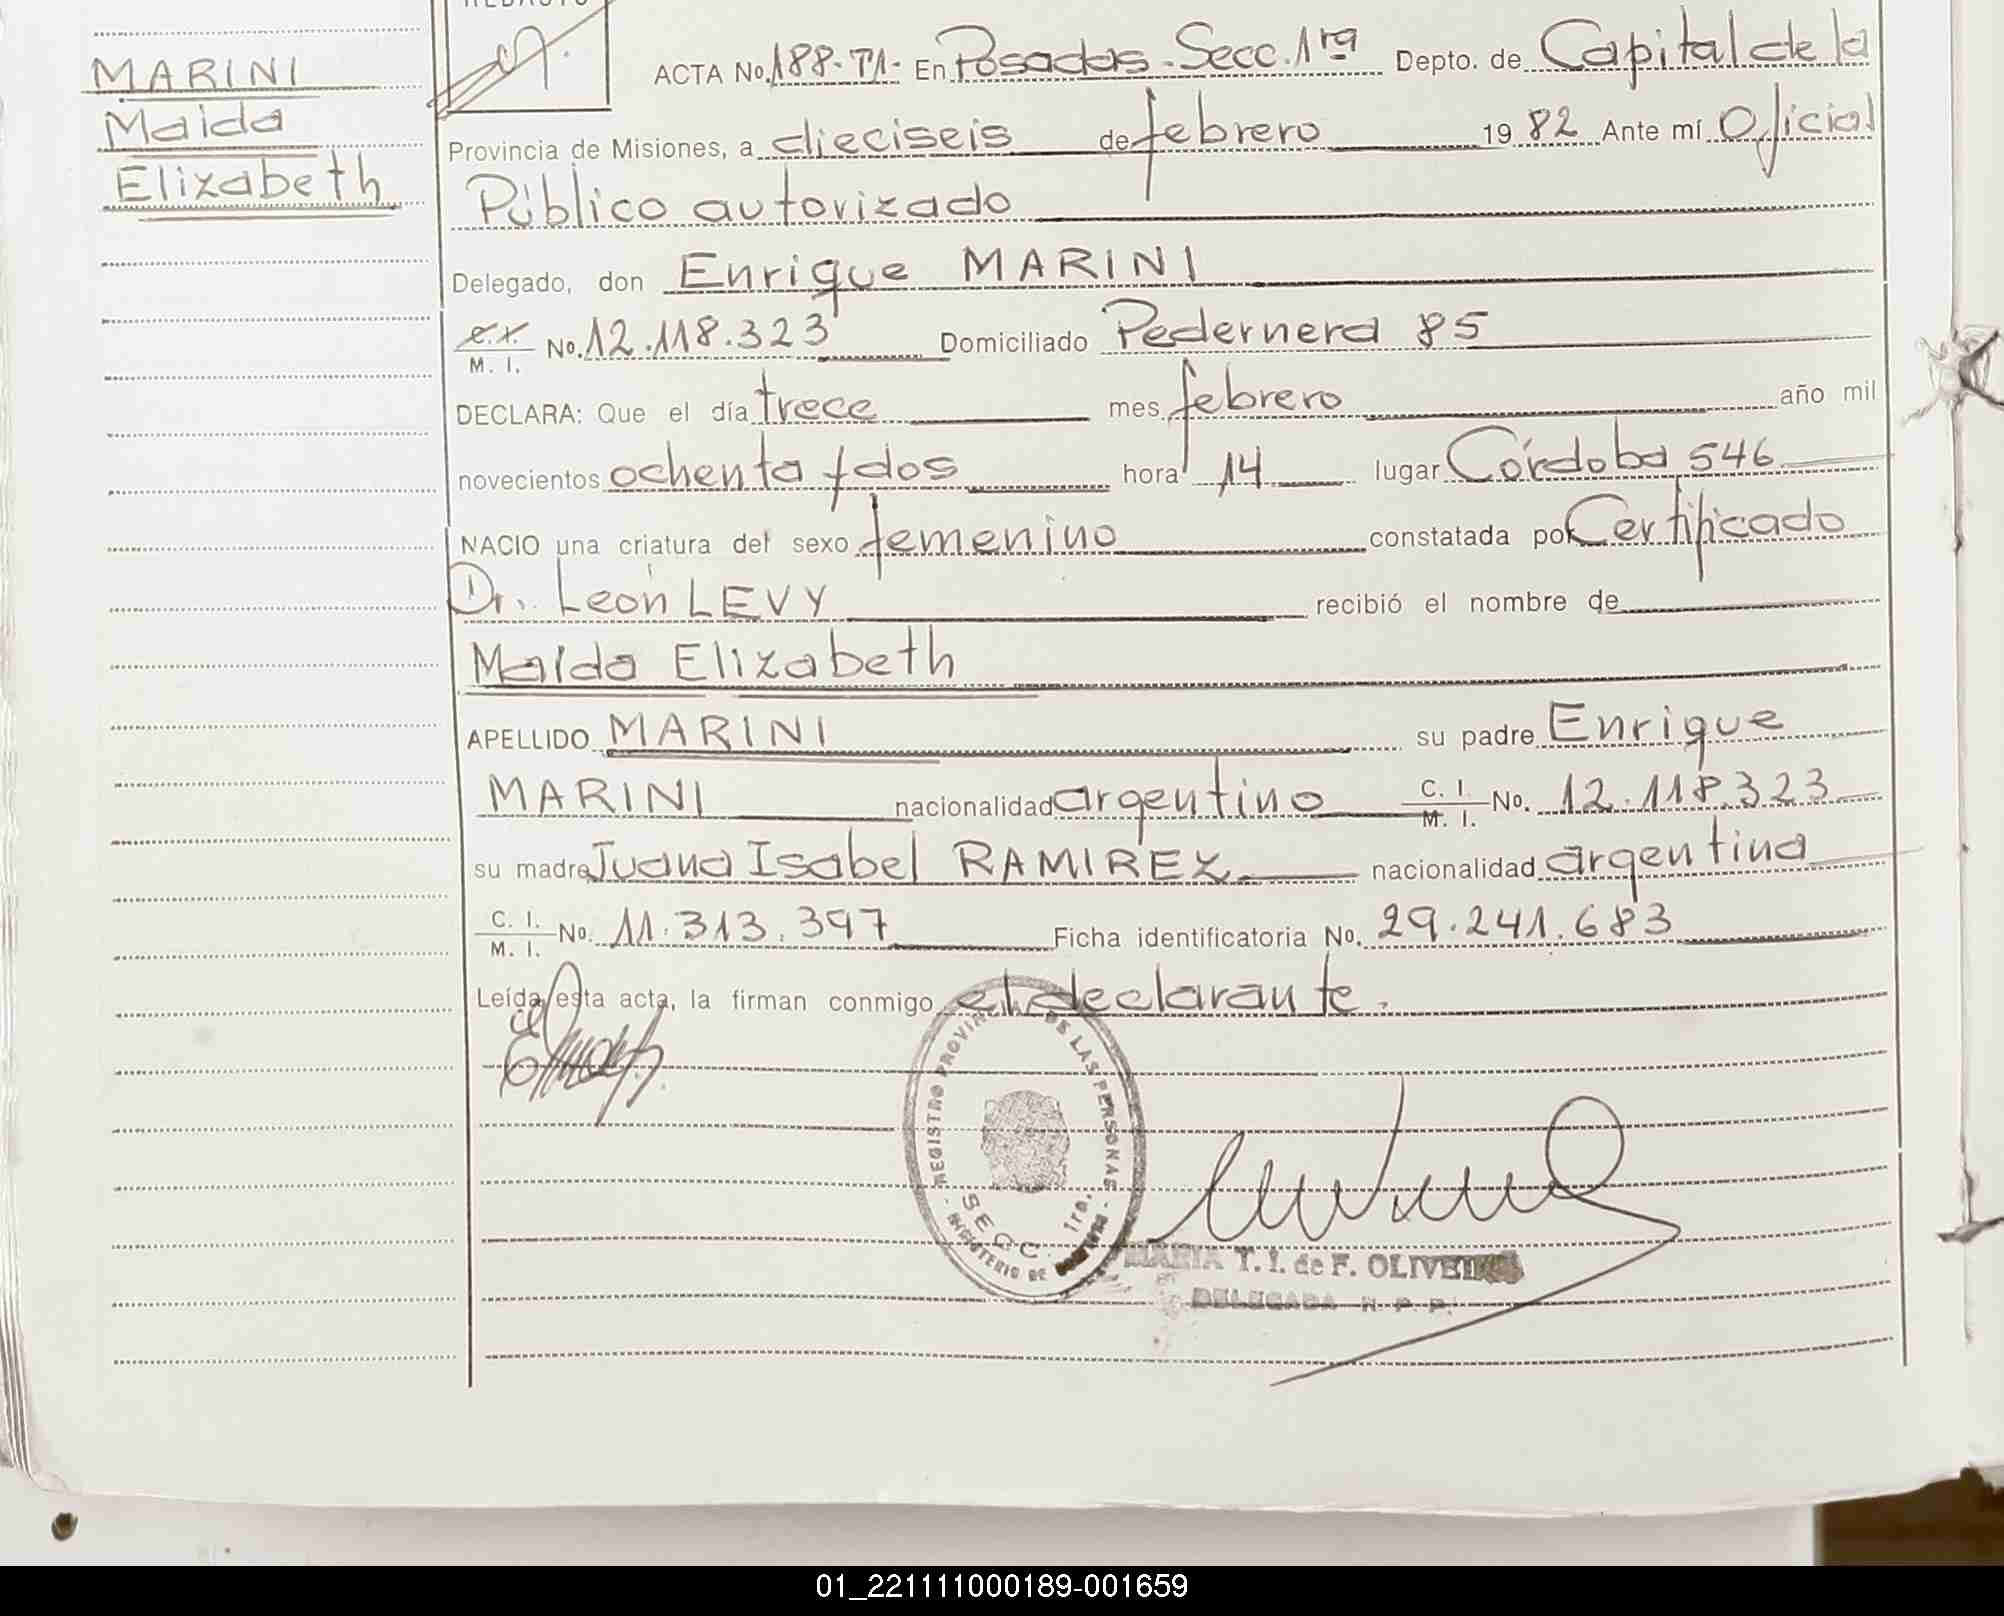 MARINI
Maida
Elizabeth
ACTA No. 188-T1- En Posadas - Secc. 1ra Depto. de Capital de la
Provincia de Misiones, a dieciseis de febrero 19 82 Ante mí Oficial
Público autorizado
Delegado, don Enrique MARINI
C. I.
M. I. No. 12.118.323 Domiciliado Pedernera 85
DECLARA: Que el día trece mes febrero año mil
novecientos ochenta y dos hora 14 lugar Córdoba 546
NACIO una criatura del sexo femenino constatada por Certificado
Dr. León LEVY recibió el nombre de
Maida Elizabeth
APELLIDO MARINI su padre Enrique
MARINI nacionalidad argentino C. I.
M. I. No. 12.118.323
su madre Juana Isabel RAMIREZ nacionalidad argentina
C. I.
M. I. No. 11.313.397 Ficha identificatoria No. 29.241.683
Leída esta acta, la firman conmigo el declarante.
REGISTRO DE LAS PERSONAS
SECC. 1ra.
MINISTERIO DE
MARIA T. I. de F. OLIVEIRA
DELEGADA R. P. P.
01_221111000189-001659